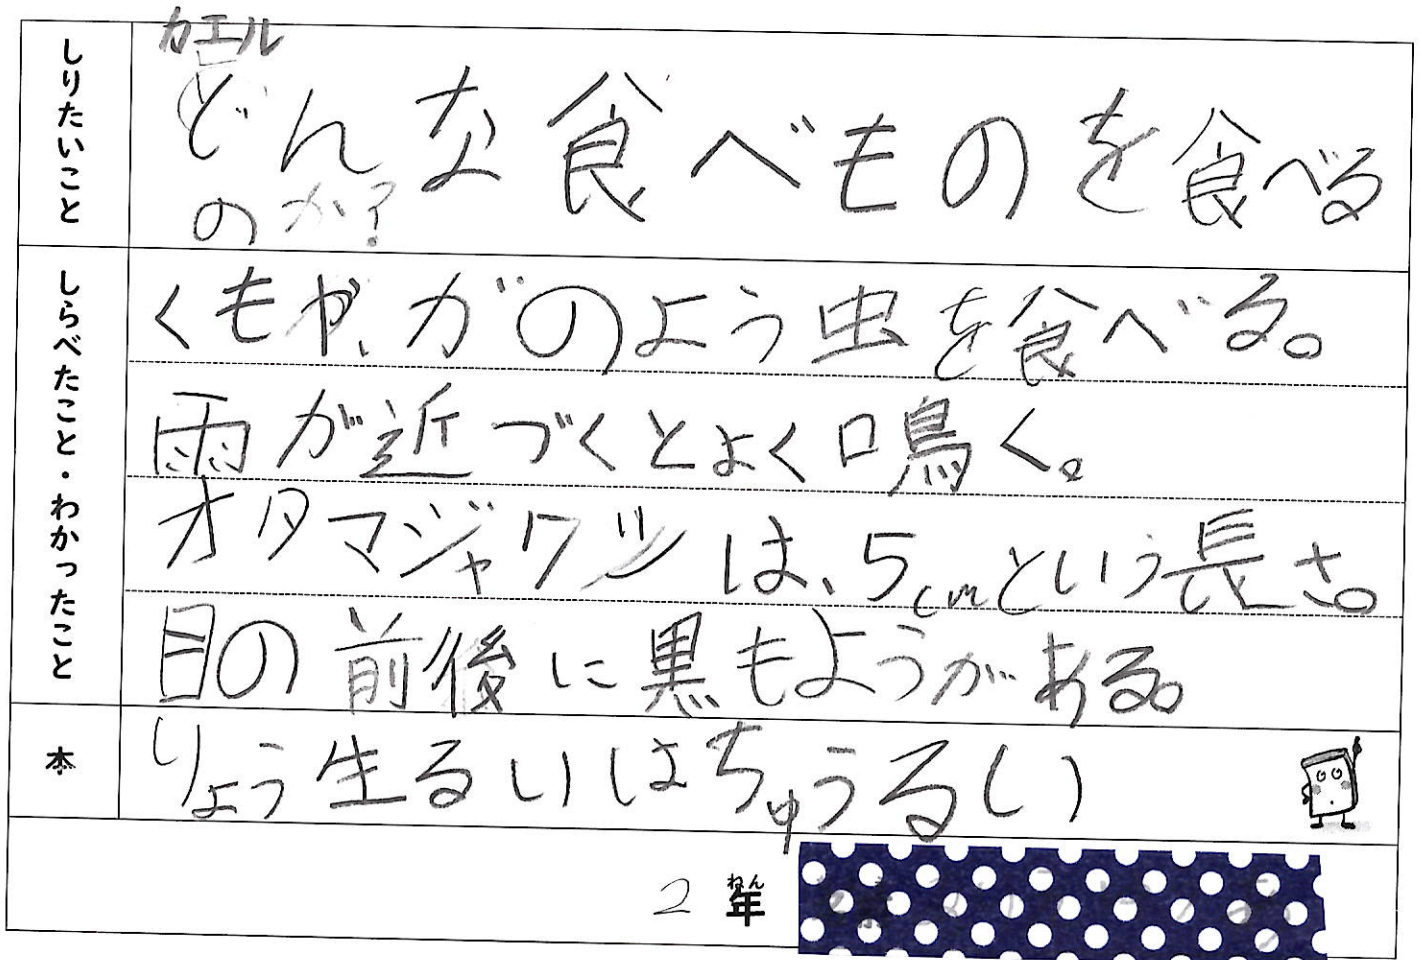 しりたいこと
カエル
どんな食べものを食べる
のか?
しらべたこと・わかったこと
くもや、がのよう虫を食べる。
雨が近づくとよく鳴く。
オタマジャクシは、5cmという長さ。
目の前後に黒もようがある。
本
りょう生るいはちゅうるい
2年
ねん